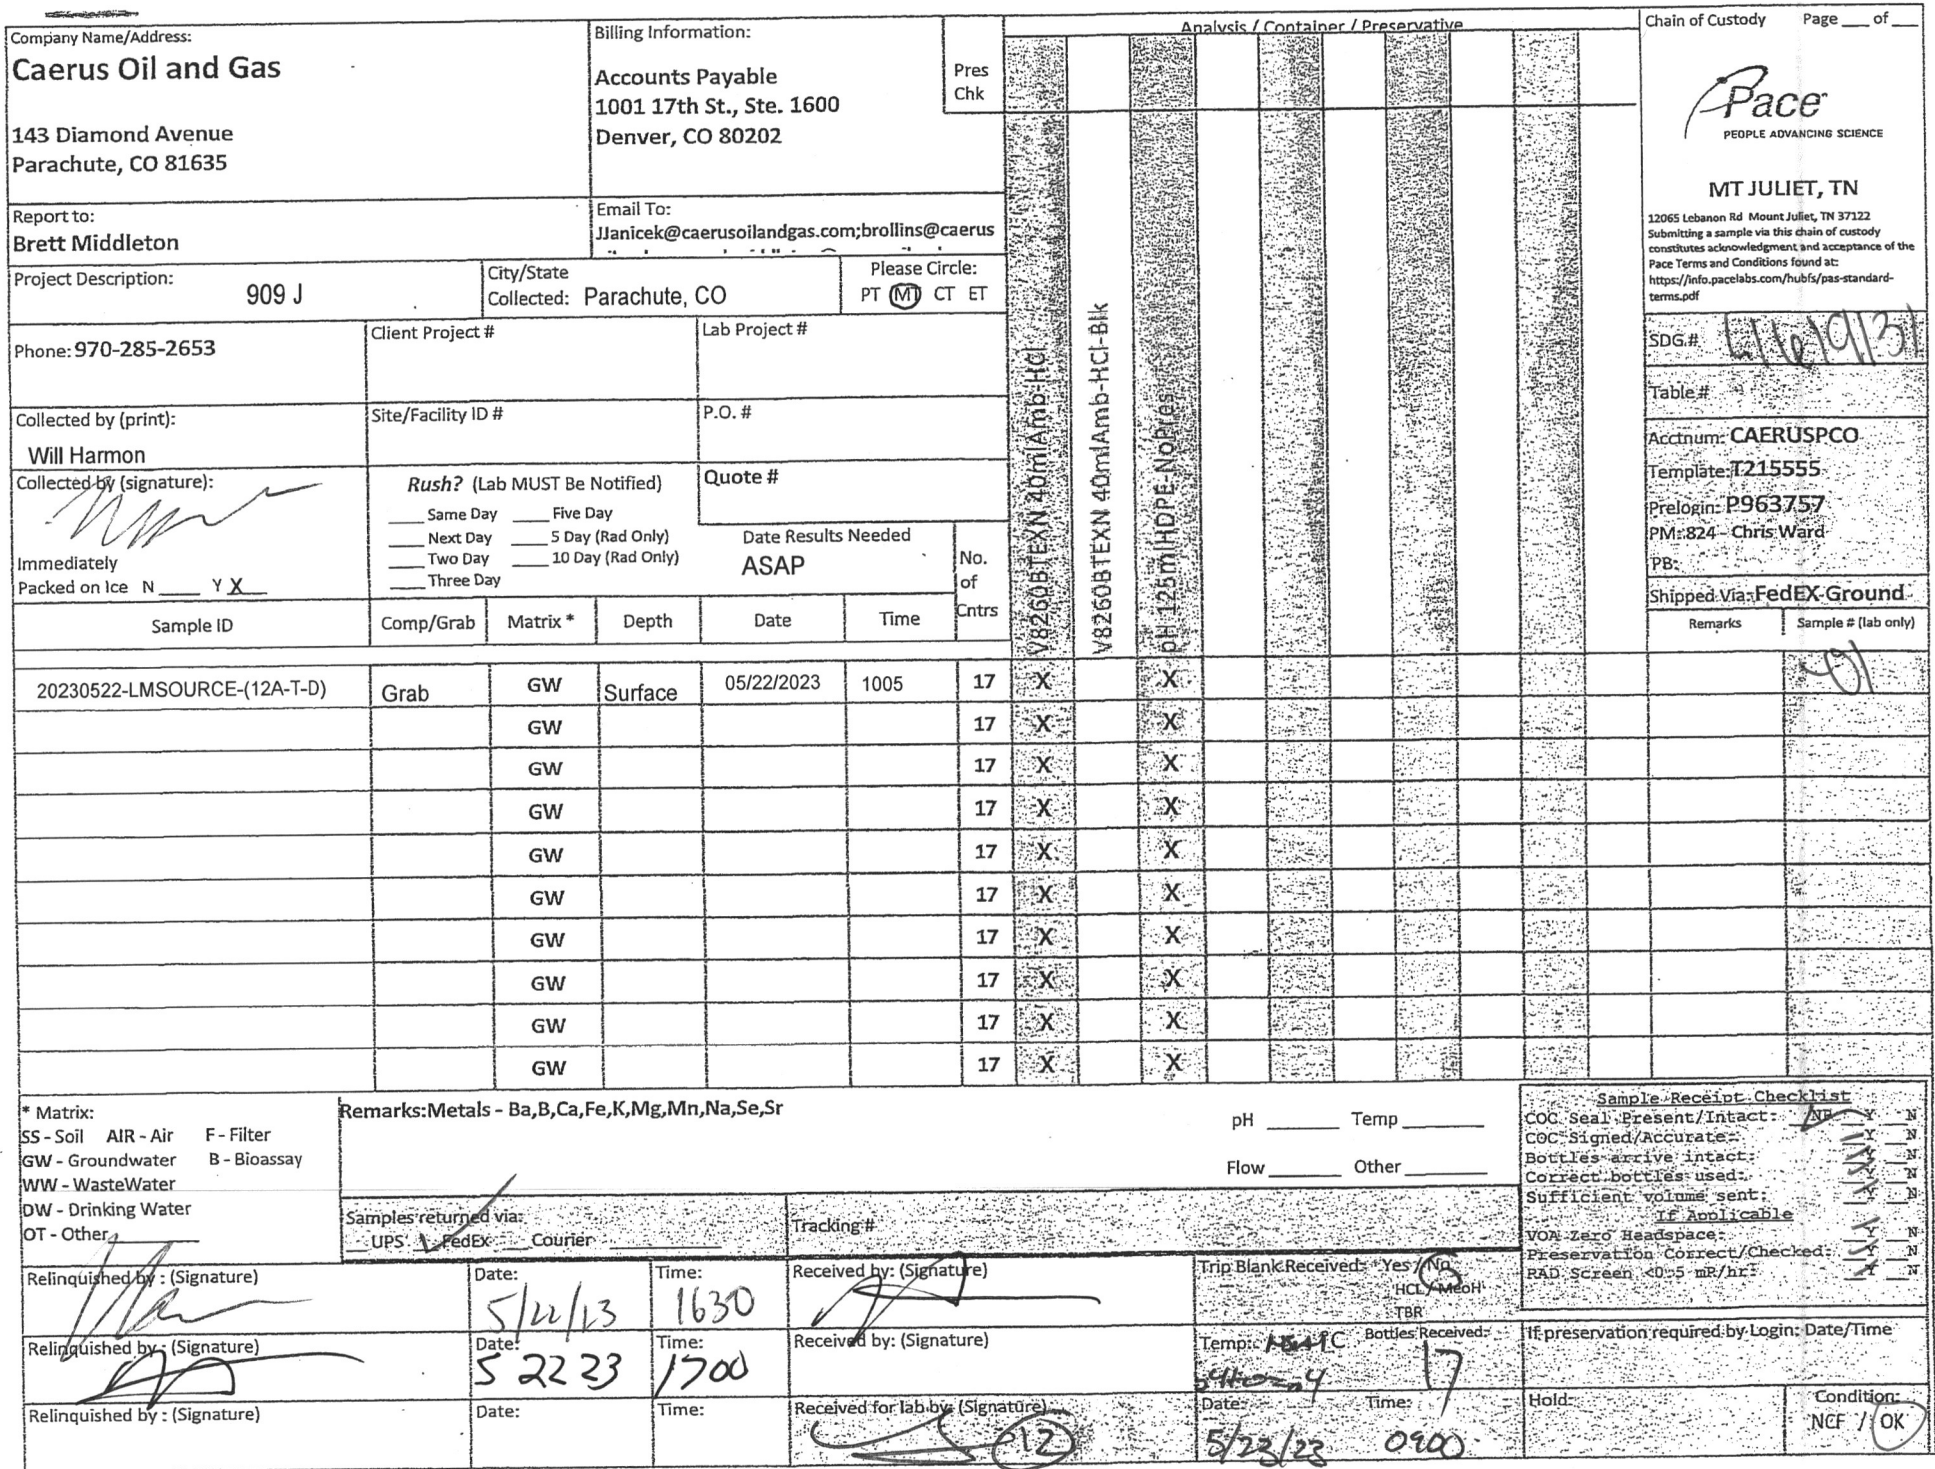 Company Name/Address:
Caerus Oil and Gas
143 Diamond Avenue
Parachute, CO 81635
Billing Information:
Accounts Payable
1001 17th St., Ste. 1600
Denver, CO 80202
Pres
Chk
Analysis / Container / Preservative
Chain of Custody Page ___ of ___
Pace
PEOPLE ADVANCING SCIENCE
MT JULIET, TN
12065 Lebanon Rd Mount Juliet, TN 37122
Submitting a sample via this chain of custody
constitutes acknowledgment and acceptance of the
Pace Terms and Conditions found at:
https://info.pacelabs.com/hubfs/pas-standard-
terms.pdf
Report to:
Brett Middleton
Email To:
JJanicek@caerusoilandgas.com;brollins@caerus
Project Description:
909 J
City/State
Collected: Parachute, CO
Please Circle:
PT MT CT ET
Phone: 970-285-2653
Client Project #
Lab Project #
SDG #
Table #
Collected by (print):
Will Harmon
Site/Facility ID #
P.O. #
Acctnum: CAERUSPCO
Template: T215555
Prelogin: P963757
PM: 824 - Chris Ward
PB:
Shipped Via: FedEX Ground
Collected by (signature):
Immediately
Packed on Ice N ___ Y X
Rush? (Lab MUST Be Notified)
___ Same Day ___ Five Day
___ Next Day ___ 5 Day (Rad Only)
___ Two Day ___ 10 Day (Rad Only)
___ Three Day
Quote #
Date Results Needed
ASAP
No.
of
Cntrs
V8260BTEXN 40mlAmb-HCl
V8260BTEXN 40mlAmb-HCl-Blk
pH 125mlHDPE-NoPres
Sample ID Comp/Grab Matrix * Depth Date Time Remarks Sample # (lab only)
20230522-LMSOURCE-(12A-T-D) Grab GW Surface 05/22/2023 1005 17 X X 01
GW 17 X X
GW 17 X X
GW 17 X X
GW 17 X X
GW 17 X X
GW 17 X X
GW 17 X X
GW 17 X X
GW 17 X X
* Matrix:
SS - Soil AIR - Air F - Filter
GW - Groundwater B - Bioassay
WW - WasteWater
DW - Drinking Water
OT - Other
Remarks:Metals - Ba,B,Ca,Fe,K,Mg,Mn,Na,Se,Sr
pH ___ Temp ___
Flow ___ Other ___
Sample Receipt Checklist
COC Seal Present/Intact: NP Y N
COC Signed/Accurate: Y N
Bottles arrive intact: Y N
Correct bottles used: Y N
Sufficient volume sent: Y N
If Applicable
VOA Zero Headspace: Y N
Preservation Correct/Checked: Y N
RAD Screen <0.5 mR/hr: Y N
Samples returned via:
___ UPS FedEx ___ Courier
Tracking #
Relinquished by : (Signature)
Date:
5/22/23
Time:
1630
Received by: (Signature)
Trip Blank Received: Yes / No
HCL / MeoH
TBR
Relinquished by : (Signature)
Date:
5 22 23
Time:
1700
Received by: (Signature)
Temp: °C
Bottles Received:
17
If preservation required by Login: Date/Time
Relinquished by : (Signature)
Date:
Time:
Received for lab by: (Signature)
12
Date:
5/23/23
Time:
0900
Hold:
Condition:
NCF / OK